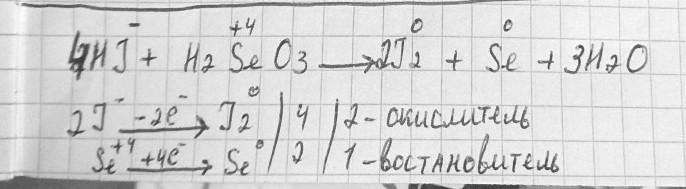 4HJ⁻ + H2Se⁺⁴O3 → 2J2⁰ + Se⁰ + 3H2O
2J⁻ -2e⁻ → J2⁰ | 4 | 2 - окислитель
Se⁺⁴ +4e⁻ → Se⁰ | 2 | 1 - востановитель